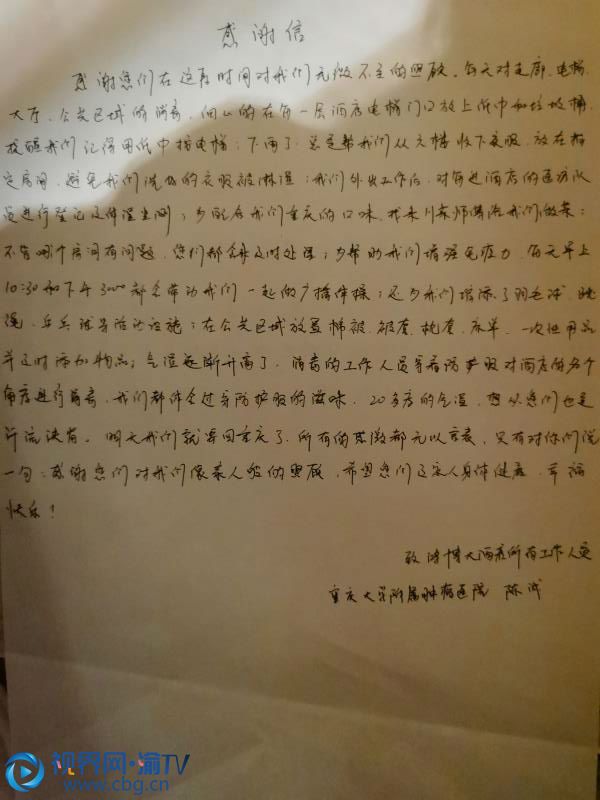 感谢信
感谢您们在这段时间对我们无微不至的照顾。每天对走廊、电梯、
大厅、公共区域的消毒，细心的在每一层酒店电梯门口放上纸巾和垃圾桶，
提醒我们记得用纸巾按电梯；下雨了，总是帮我们从天楼收下衣服，放在指
定房间，避免我们洗好的衣服被淋湿；我们外出工作后，对每进酒店的医疗队
员进行登记及体温监测；为配合我们重庆的口味，找来川菜师傅给我们做菜；
不管哪个房间有问题，您们都会及时处理；为帮助我们增强免疫力，每天早上
10:30和下午3:00都会带动我们一起做广播体操；还为我们增添了羽毛球、跳
绳、乒乓球等活动设施；在公共区域放置棉被、被套、枕套、床单、一次性用品
并及时添加物品；气温逐渐升高了，消毒的工作人员穿着防护服对酒店的各个
角度进行消毒，我们都体会过穿防护服的滋味，20多度的气温，想必您们也是
汗流浃背。明天我们就要回重庆了，所有的感激都无以言表，只有对你们说
一句：感谢您们对我们像亲人般的照顾，希望您们及家人身体健康、幸福
快乐！
致 博大酒店所有工作人员
重庆大学附属肿瘤医院 陈
视界网·渝TV
www.cbg.cn